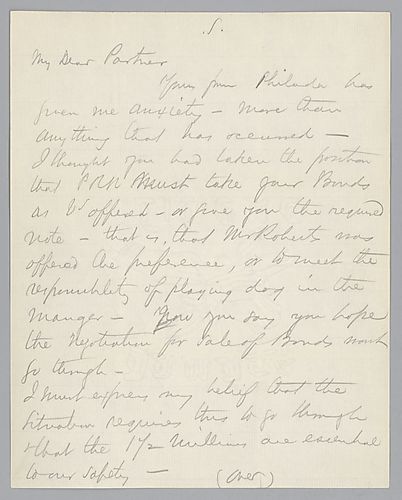 .5.
My Dear Partner
Yours from Philada has
given me anxiety – more than
anything that has occurred –
I thought you had taken the position
that PRR Must take your Bonds
as offered – or give you the required
note – that is, that Mr Roberts was
offered the preference, or to meet the
responsibility of playing dog in the
Manger – Now you say you hope
the Negotiation for Sale of Bonds wont
go through –
I must express my belief that the
Situation requires this to go through
& that the 1½ Millions are essential
to our Safety –
(over)